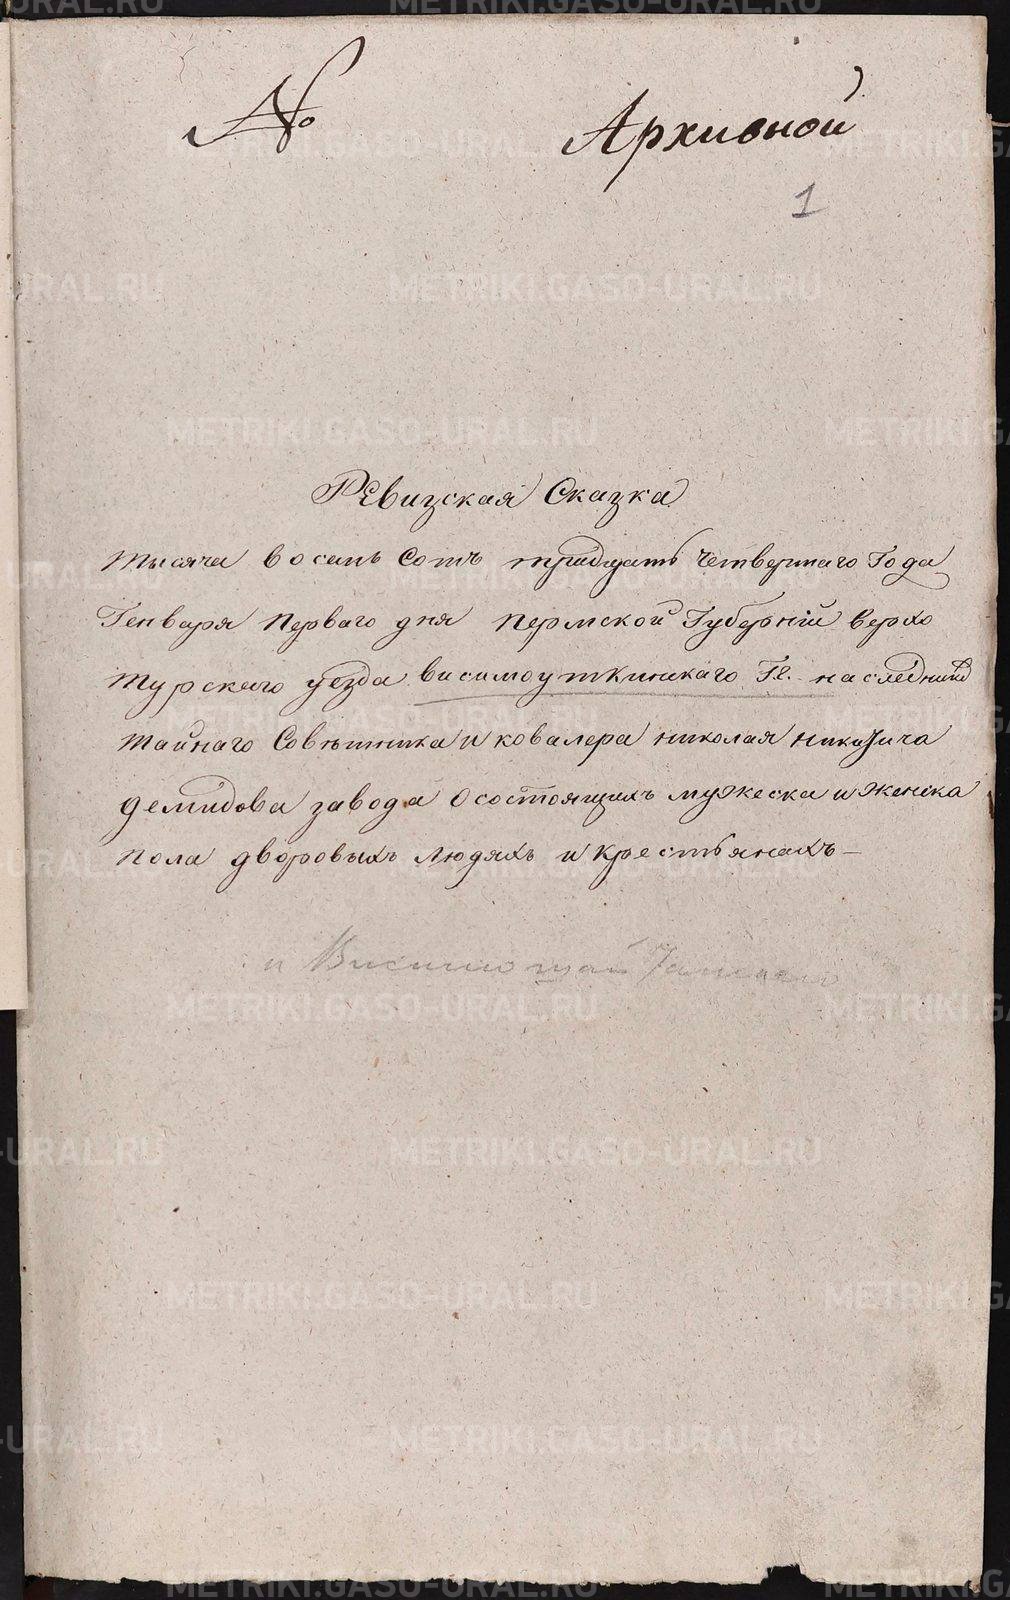 № Архивной
1
Ревизская Сказка
тысяча восемь Сотъ тридцать Четвертаго Года
Генваря перваго дня пермской Губерніи верхо
турскаго уезда висимоуткинскаго Гг. наследник
тайнаго Советника и ковалера николая никитича
демидова завода о состоящихъ мужеска и женска
пола дворовыхъ людяхъ и крестьянахъ—
и Висимо
METRIKI.GASO-URAL.RU